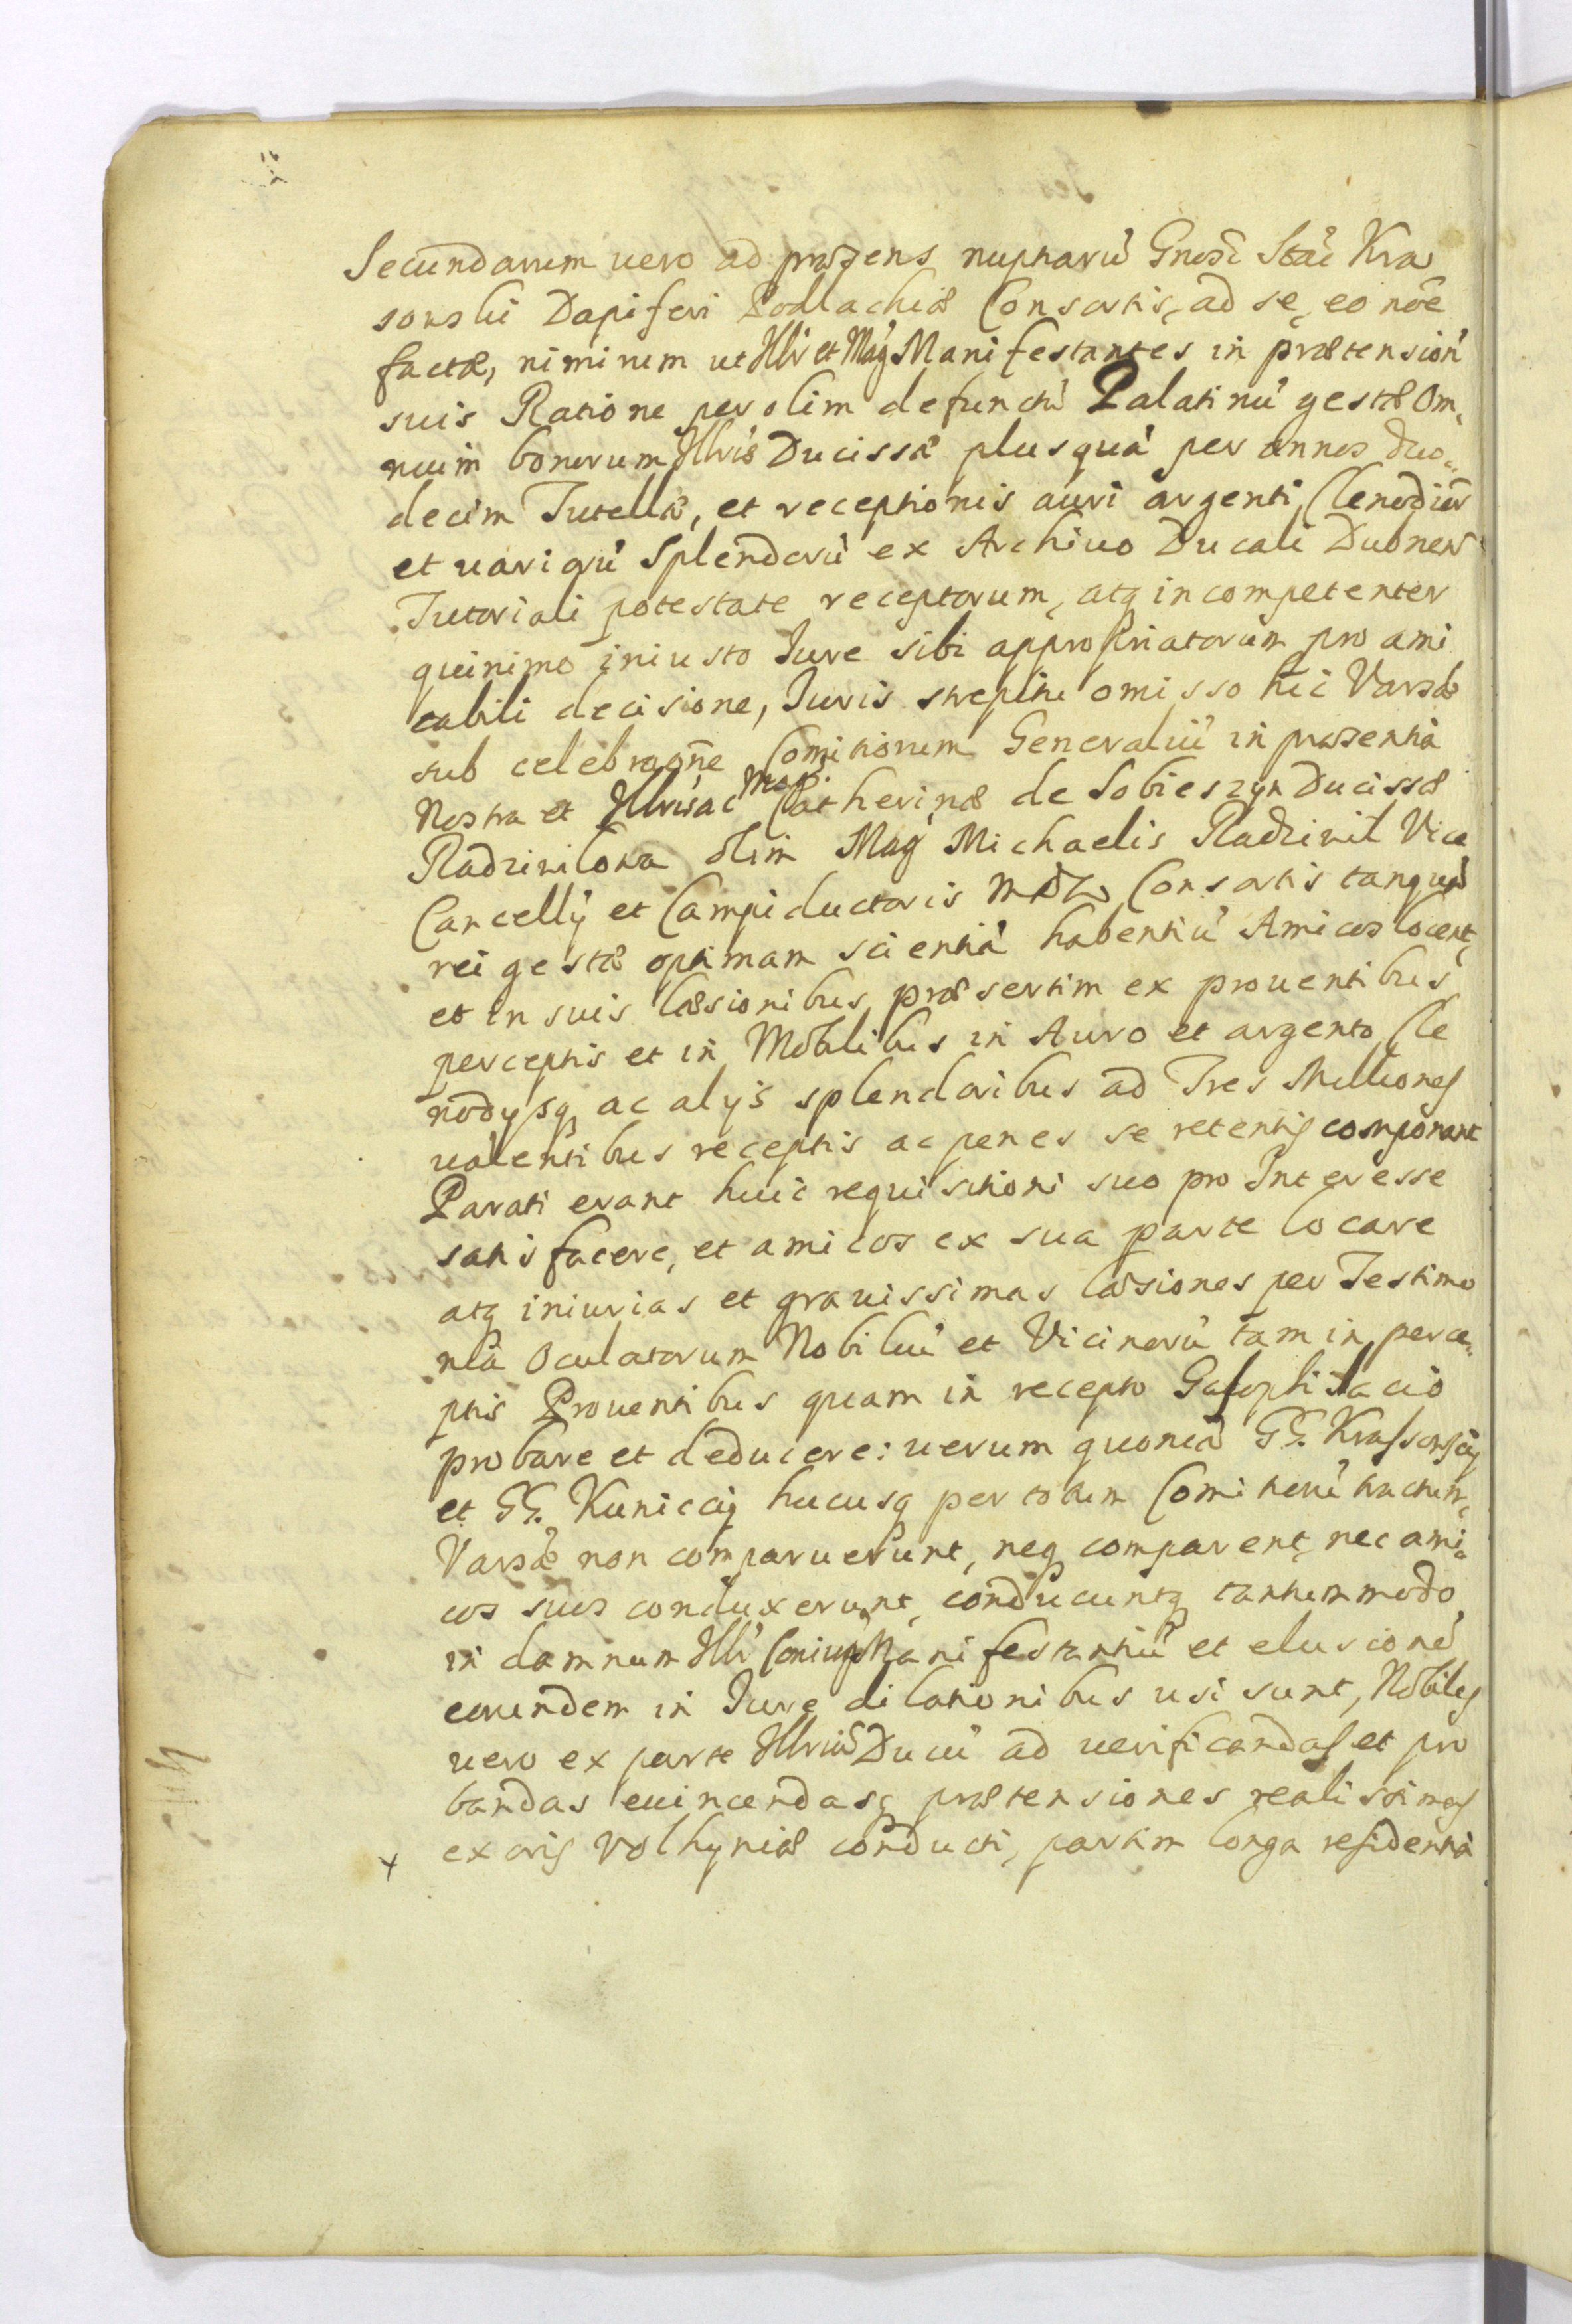 Secundarum uero ad præsens nuptiarũ Gnosi Stãi Kra
sowski Dapiferi Podlachiæ Consortis, ad se, eo nõe
factæ, nimirum ut Illr̃ et Mag̃ Manifestantes in prætension̄
suis Ratione per olim defunctũ Palatinũ gestæ Om,
nium bonorum Illr̃is Ducissæ plusquã per annos duo,,
decim Tutellæ, et receptionis auri argenti, Clenodiorũ
et uariorũ Splendorũ ex Archiuo Ducali Dubnen̄
Tutoriali potestate receptorum, atq incompetenter
quinimo iniusto Iure sibi appropriatorum pro ami
cabili decisione, Iuris strepitu omisso hic Varsæ
sub celebraõne Comitiorum Generaliũ in præsentia
Nostra et Illr̃is ac Mag̃ Catherinæ de Sobieszyn Ducissæ
Radziwilowa olim Mag̃ Michaelis Radziwil Vice
Cancellÿ et Campiductoris MDL Consortis tanquã
rei gestæ optimam scientiã habentiũ Amicos locent,
et in suis læsionibus, præsertim ex prouentibus
perceptis et in Mobilibus in Auro et argento, Cle
nodÿsq ac alÿs splendoribus ad Tres Milliones
ualentibus receptis ac penes se retentis componant
Parati erant huic requisitioni suo pro Interesse
satisfacere, et amicos ex sua parte locare
atq iniurias et grauissimas læsiones per Testimo
nia Oculatorum Nobiliũ et Vicinorũ tam in perce,,
ptis Prouentibus quam in recepto Gazophilacio
probare et deducere: uerum quoniã GG. Krassowscÿ
et GG. Kuniccÿ hucusq per totum Comitiorũ tractum,
Varsæ non comparuerunt, neq comparent, nec ami,
cos suos conduxerunt, conducuntq tantummodo
in damnum Illr̃ Coniugũ Manifestantiũ et elusionẽ
eorundem in Iure dilationibus usi sunt, Nobiles
uero ex parte Illriũ Ducũ ad uerificandas et pro
bandas euincendasq prætensiones realissimas
ex oris Volhyniæ conducti, partim longa residentiã